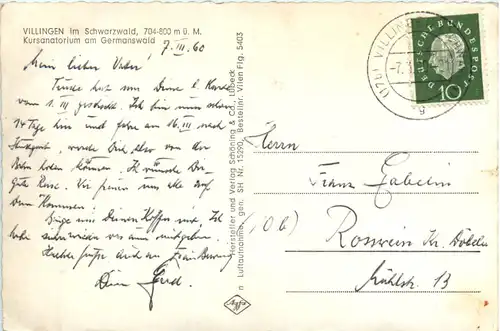 VILLINGEN im Schwarzwald, 704-800 m ü. M.
Kursanatorium am Germanswald
7. III. 60
Mein lieber Vater!
hat uns Deine l. Karte
vom 1. III gefreut. Ich bin nun schon
14 Tage hier und fahre am 16. III nach
Stuttgart, werde Dich also von der
Bahn holen können. Ich wünsche Dir
gute Reise. Wir freuen uns alle auf
Dein Kommen.
Deinen Koffer mit. Ich
Dein Gerd.
Hersteller und Verlag Schöning & Co., Lübeck
n Luftaufnahme, gen. SH Nr. 15290, Bestellnr. Vilen Ffg. 5403
Agfa
(17b) VILLINGEN
-7.3.
g
DEUTSCHE BUNDESPOST
10
Herrn
Franz Gabelin
(10b)
Rosswein Kr. Döbeln
Mühlstr. 13